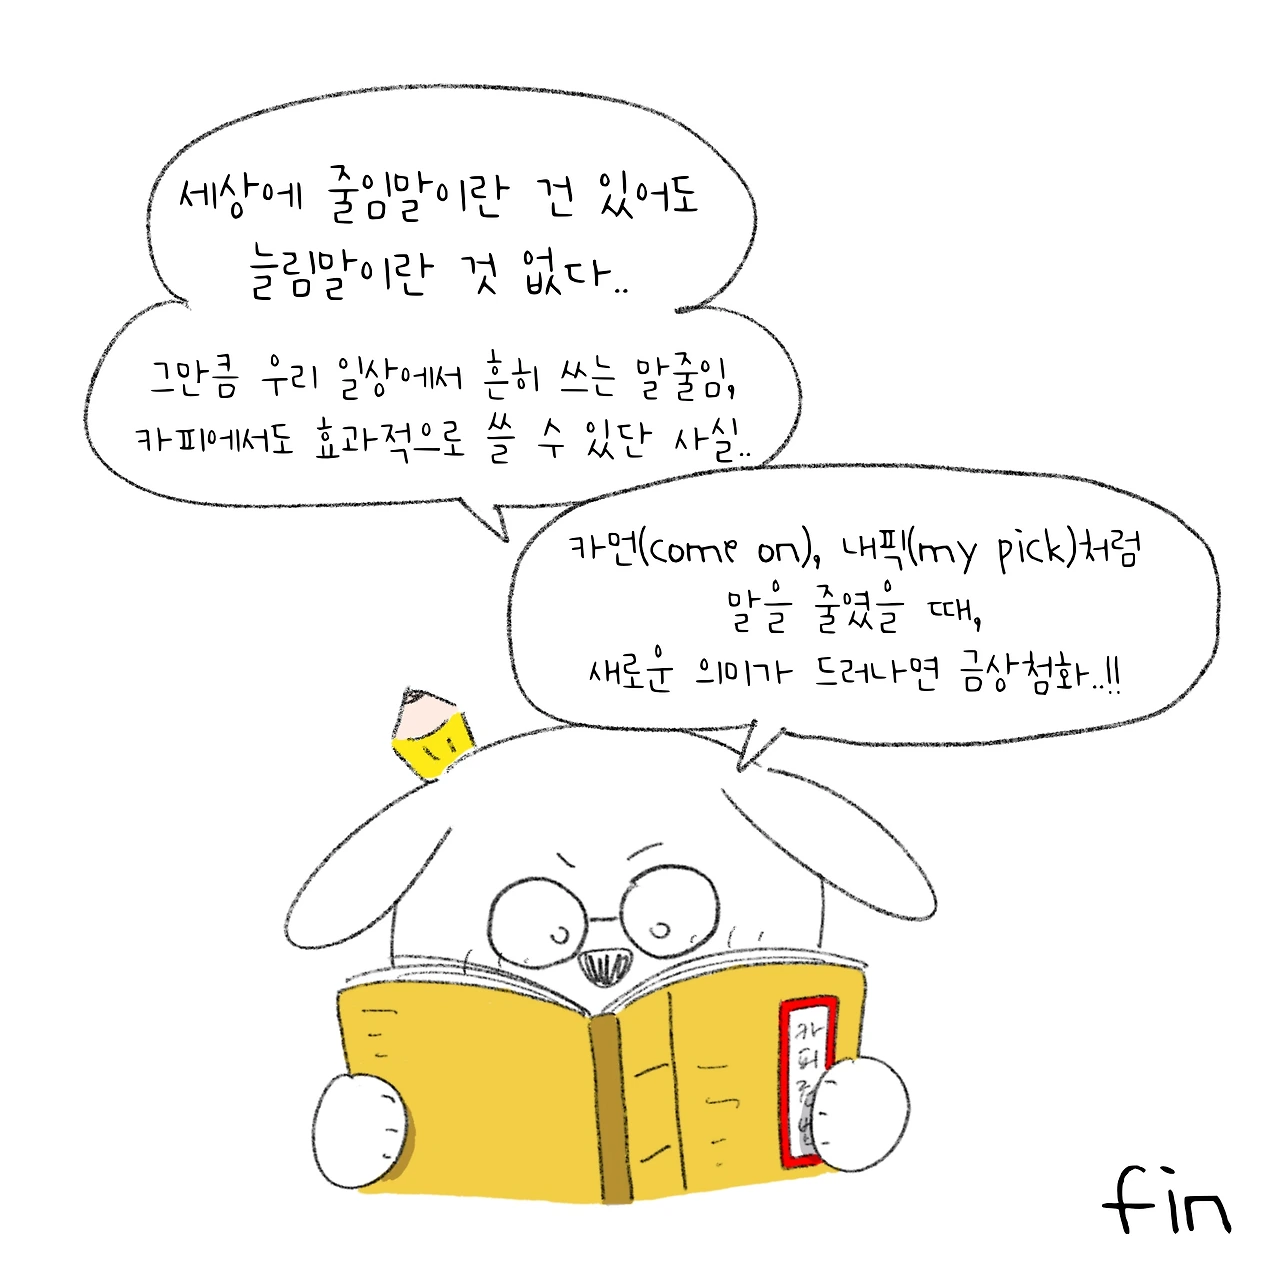 세상에 줄임말이란 건 있어도
늘림말이란 것 없다..
그만큼 우리 일상에서 흔히 쓰는 말줄임,
카피에서도 효과적으로 쓸 수 있단 사실..
카먼(come on), 내픽(my pick)처럼
말을 줄였을 때,
새로운 의미가 드러나면 금상첨화..!!
카
피
fin